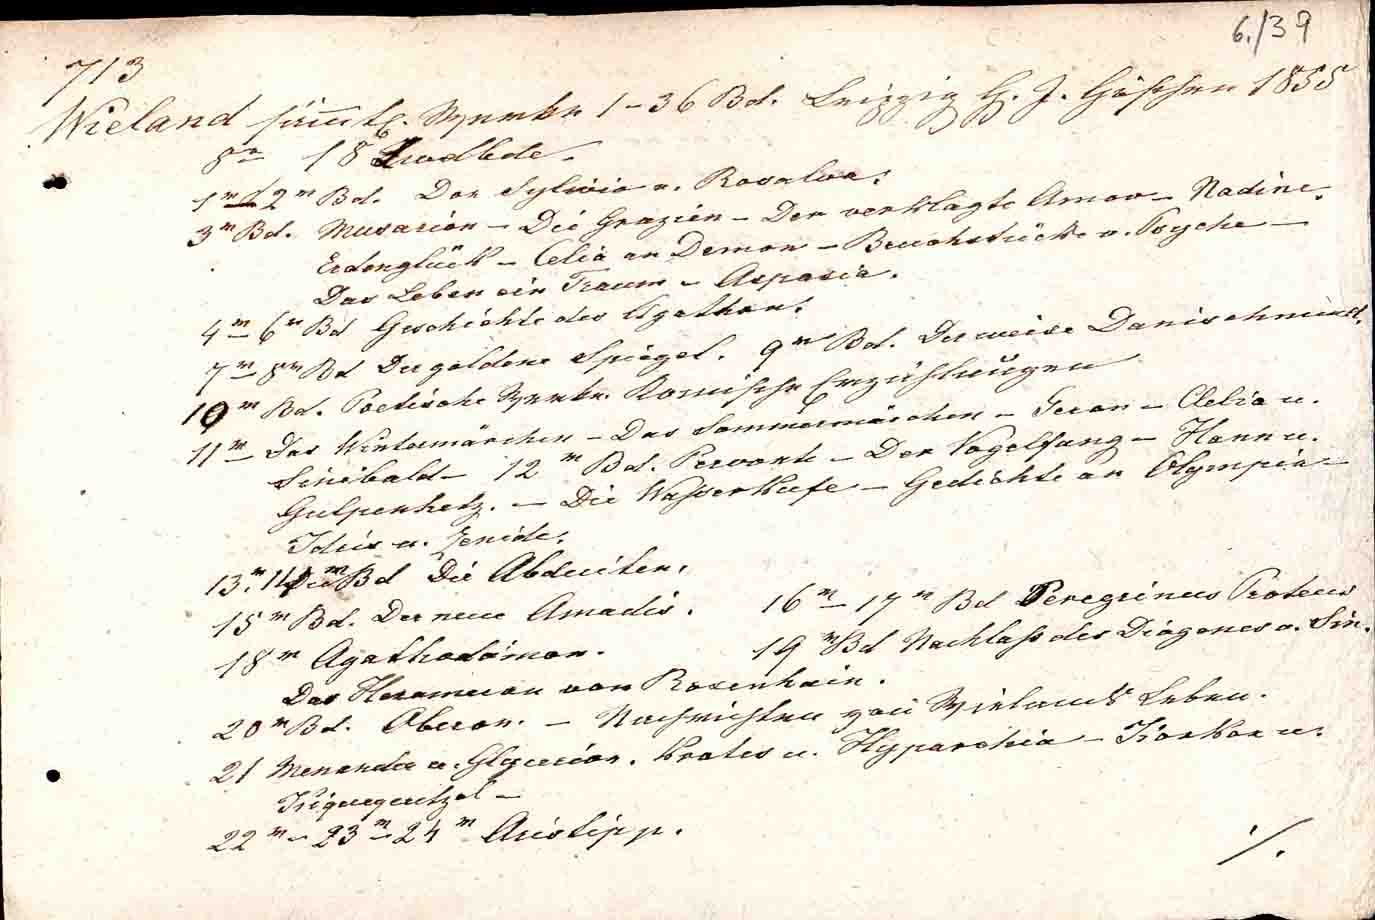 6./39
713
Wieland sämtl. Werke 1-36 Bd. Leipzig G. J. Göschen 1855
8° 18 Lwdbde.
1r-2r Bd. Don Sylvio v. Rosalva.
3r Bd. Musarion - Die Grazien - Der verklagte Amor - Nadine.
Erdenglück - Celia an Damon - Bruchstücke v. Psyche -
Das Leben ein Traum - Aspasia.
4r-6r Bd Geschichte des Agathon.
7r-8r Bd Der goldene Spiegel. 9r Bd. Der weise Danischmend.
10r Bd. Poetische Werke. Komische Erzählungen
11r- Das Wintermärchen - Das Sommermärchen - Geron - Clelia u.
Sinibald - 12r Bd. Pervonte - Der Vogelsang - Hann u.
Gulpenhetz. - Die Wasserkufe - Gedichte an Olympia -
Idris u. Zenide.
13r. 14r Bd Die Abderiten.
15r Bd. Der neue Amadis. 16r-17r Bd Peregrinus Proteus
18r Agathodämon. 19r Bd Nachlaß des Diogenes v. Sin.
Das Hexameron von Rosenhain.
20r Bd. Oberon. - Nachrichten von Wielands Leben.
21 Menander u. Glycerion. Krates u. Hyparchia - Koxkox u.
Kikequetzel -
22r-23r-24r Aristipp.
./.